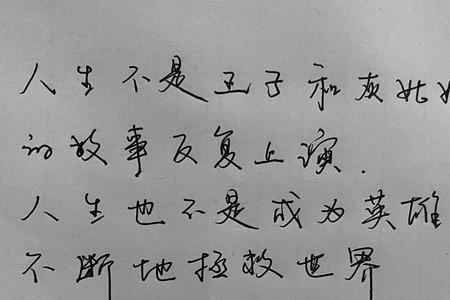 人生不是王子和灰姑娘
的故事反复上演.
人生也不是成为英雄
不断地拯救世界